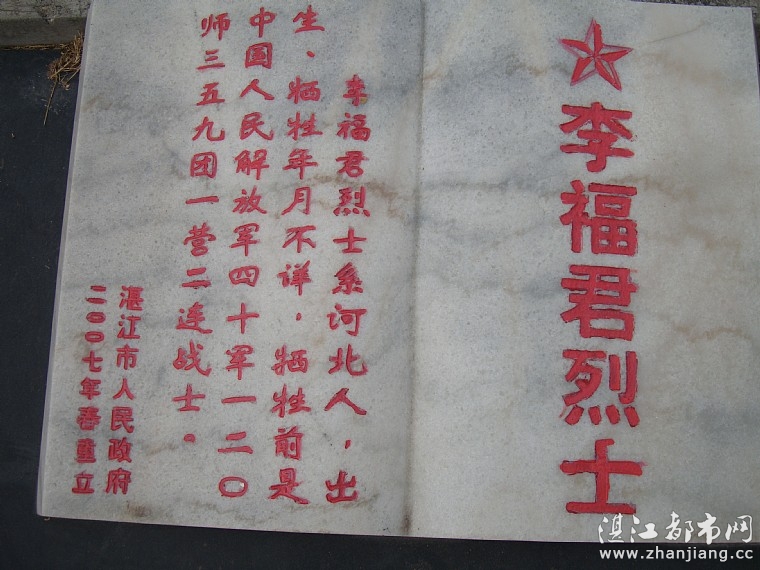 李福君烈士
李福君烈士系河北人，出
生、牺牲年月不详，牺牲前是
中国人民解放军四十军一二〇
师三五九团一营二连战士。
湛江市人民政府
二〇〇七年春重立
湛江都市网
www.zhanjiang.cc